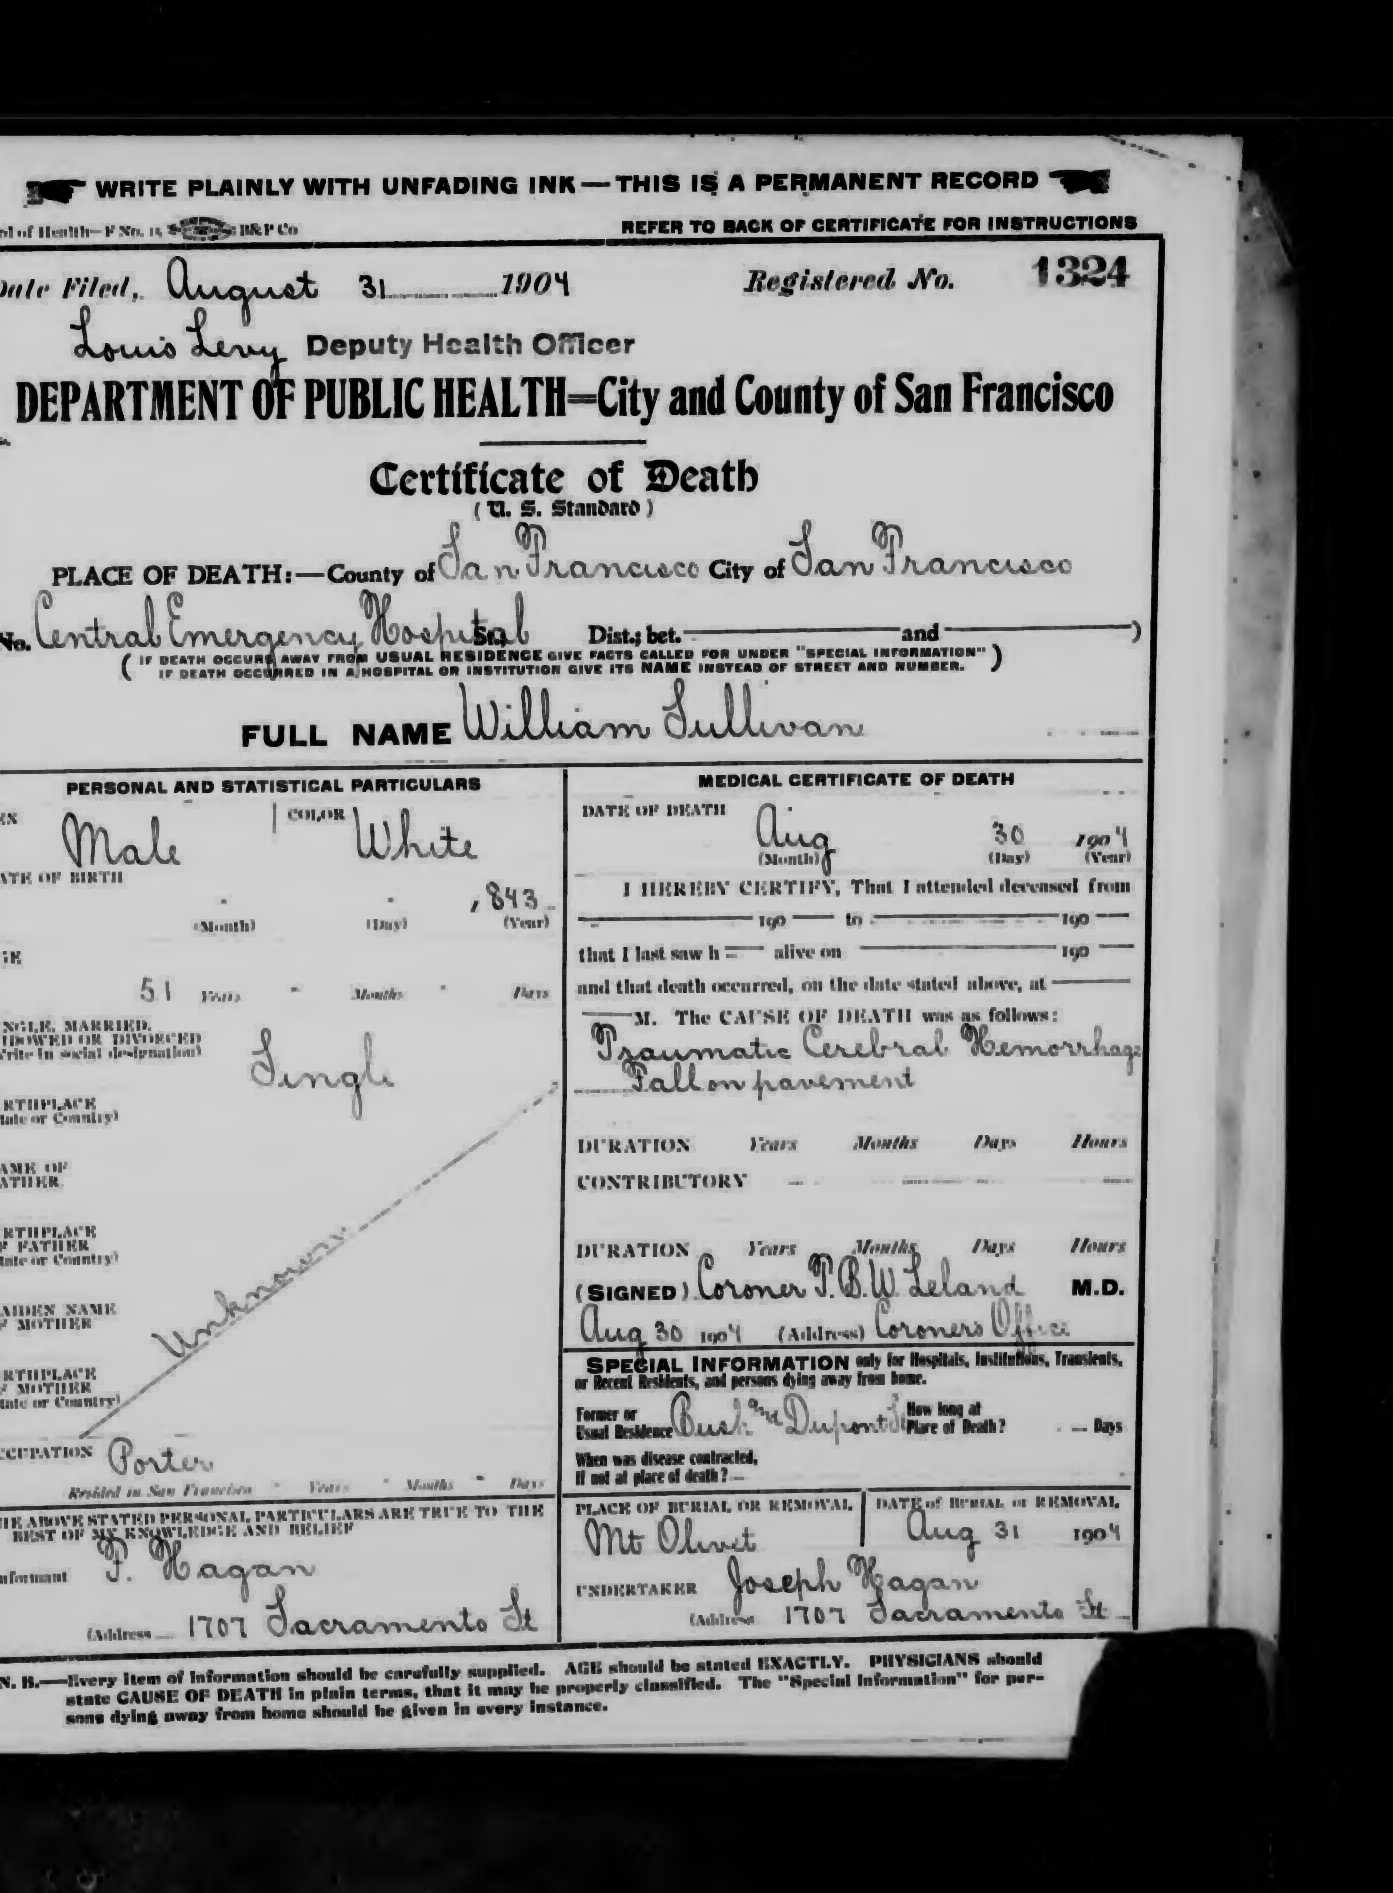 WRITE PLAINLY WITH UNFADING INK—THIS IS A PERMANENT RECORD
of Health—F No. 15 B&P Co
REFER TO BACK OF CERTIFICATE FOR INSTRUCTIONS
Date Filed, August 31 1904 Registered No. 1324
Louis Levy Deputy Health Officer
DEPARTMENT OF PUBLIC HEALTH=City and County of San Francisco
Certificate of Death
(U. S. Standard)
PLACE OF DEATH:—County of San Francisco City of San Francisco
No. Central Emergency Hospital St.; Dist.; bet. and )
( IF DEATH OCCURS AWAY FROM USUAL RESIDENCE GIVE FACTS CALLED FOR UNDER "SPECIAL INFORMATION" )
IF DEATH OCCURRED IN A HOSPITAL OR INSTITUTION GIVE ITS NAME INSTEAD OF STREET AND NUMBER.
FULL NAME William Sullivan
PERSONAL AND STATISTICAL PARTICULARS
EX Male COLOR White
ATE OF BIRTH
, 843
(Month) (Day) (Year)
GE
51 Years " Months " Days
NGLE, MARRIED,
IDOWED OR DIVORCED
Write in social designation)
Single
RTHPLACE
tate or Country)
AME OF
ATHER
RTHPLACE
F FATHER
tate or Country)
Unknown
AIDEN NAME
F MOTHER
RTHPLACE
F MOTHER
tate or Country)
CCUPATION Porter
Resided in San Francisco " Years " Months " Days
HE ABOVE STATED PERSONAL PARTICULARS ARE TRUE TO THE
BEST OF MY KNOWLEDGE AND BELIEF
nformant P. Hagan
(Address 1707 Sacramento St
MEDICAL CERTIFICATE OF DEATH
DATE OF DEATH
Aug 30 1904
(Month) (Day) (Year)
I HEREBY CERTIFY, That I attended deceased from
190 to 190
that I last saw h alive on 190
and that death occurred, on the date stated above, at
M. The CAUSE OF DEATH was as follows:
Traumatic Cerebral Hemorrhage
Fall on pavement
DURATION Years Months Days Hours
CONTRIBUTORY
DURATION Years Months Days Hours
(SIGNED) Coroner T. B. W. Leland M.D.
Aug 30 1904 (Address) Coroners Office
SPECIAL INFORMATION only for Hospitals, Institutions, Transients,
or Recent Residents, and persons dying away from home.
Former or
Usual Residence Bush and Dupont St How long at
Place of Death? — Days
When was disease contracted,
If not at place of death? —
PLACE OF BURIAL OR REMOVAL DATE of BURIAL or REMOVAL
Mt Olivet Aug 31 1904
UNDERTAKER Joseph Hagan
(Address 1707 Sacramento St
N. B.—Every item of information should be carefully supplied. AGE should be stated EXACTLY. PHYSICIANS should
state CAUSE OF DEATH in plain terms, that it may be properly classified. The "Special Information" for per-
sons dying away from home should be given in every instance.